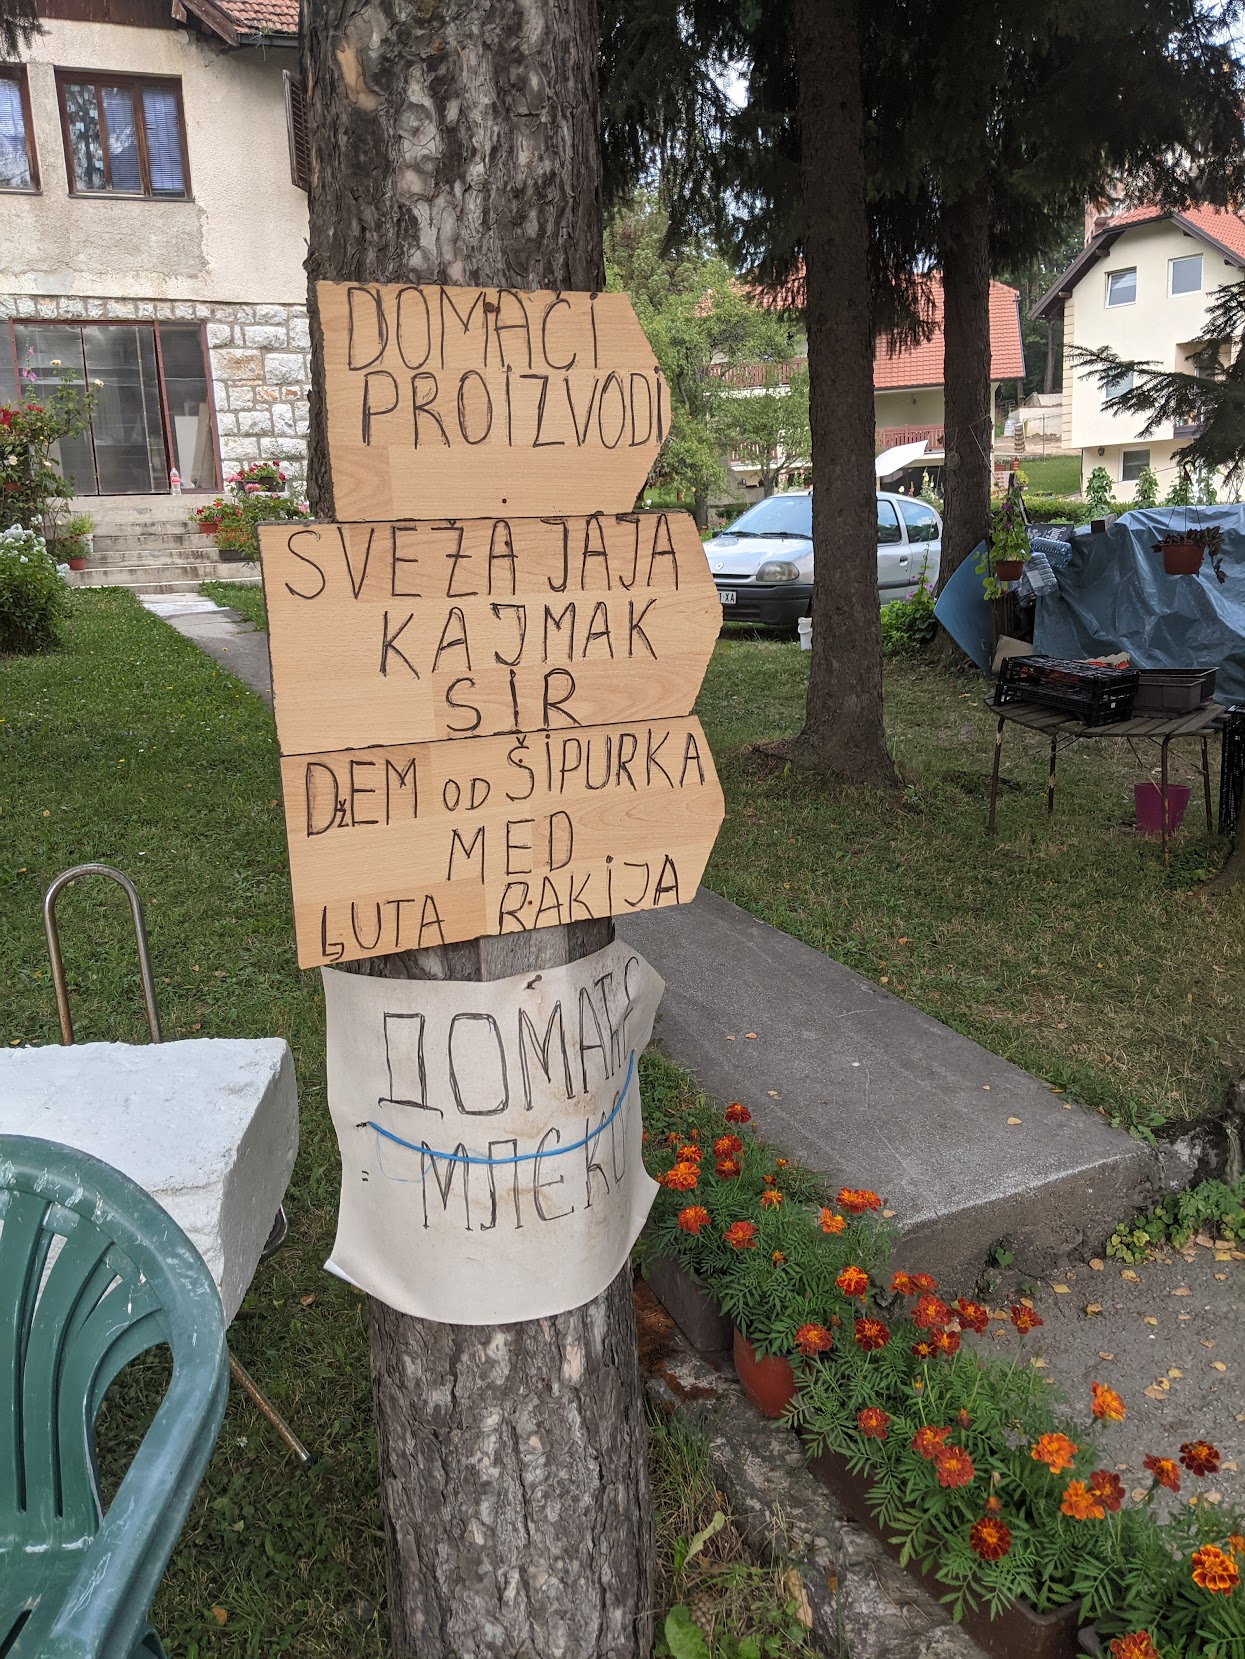 DOMAĆI
PROIZVODI
SVEŽA JAJA
KAJMAK
SIR
DžEM OD ŠIPURKA
MED
LJUTA RAKIJA
ДОМАЋЕ
МЛЕКО